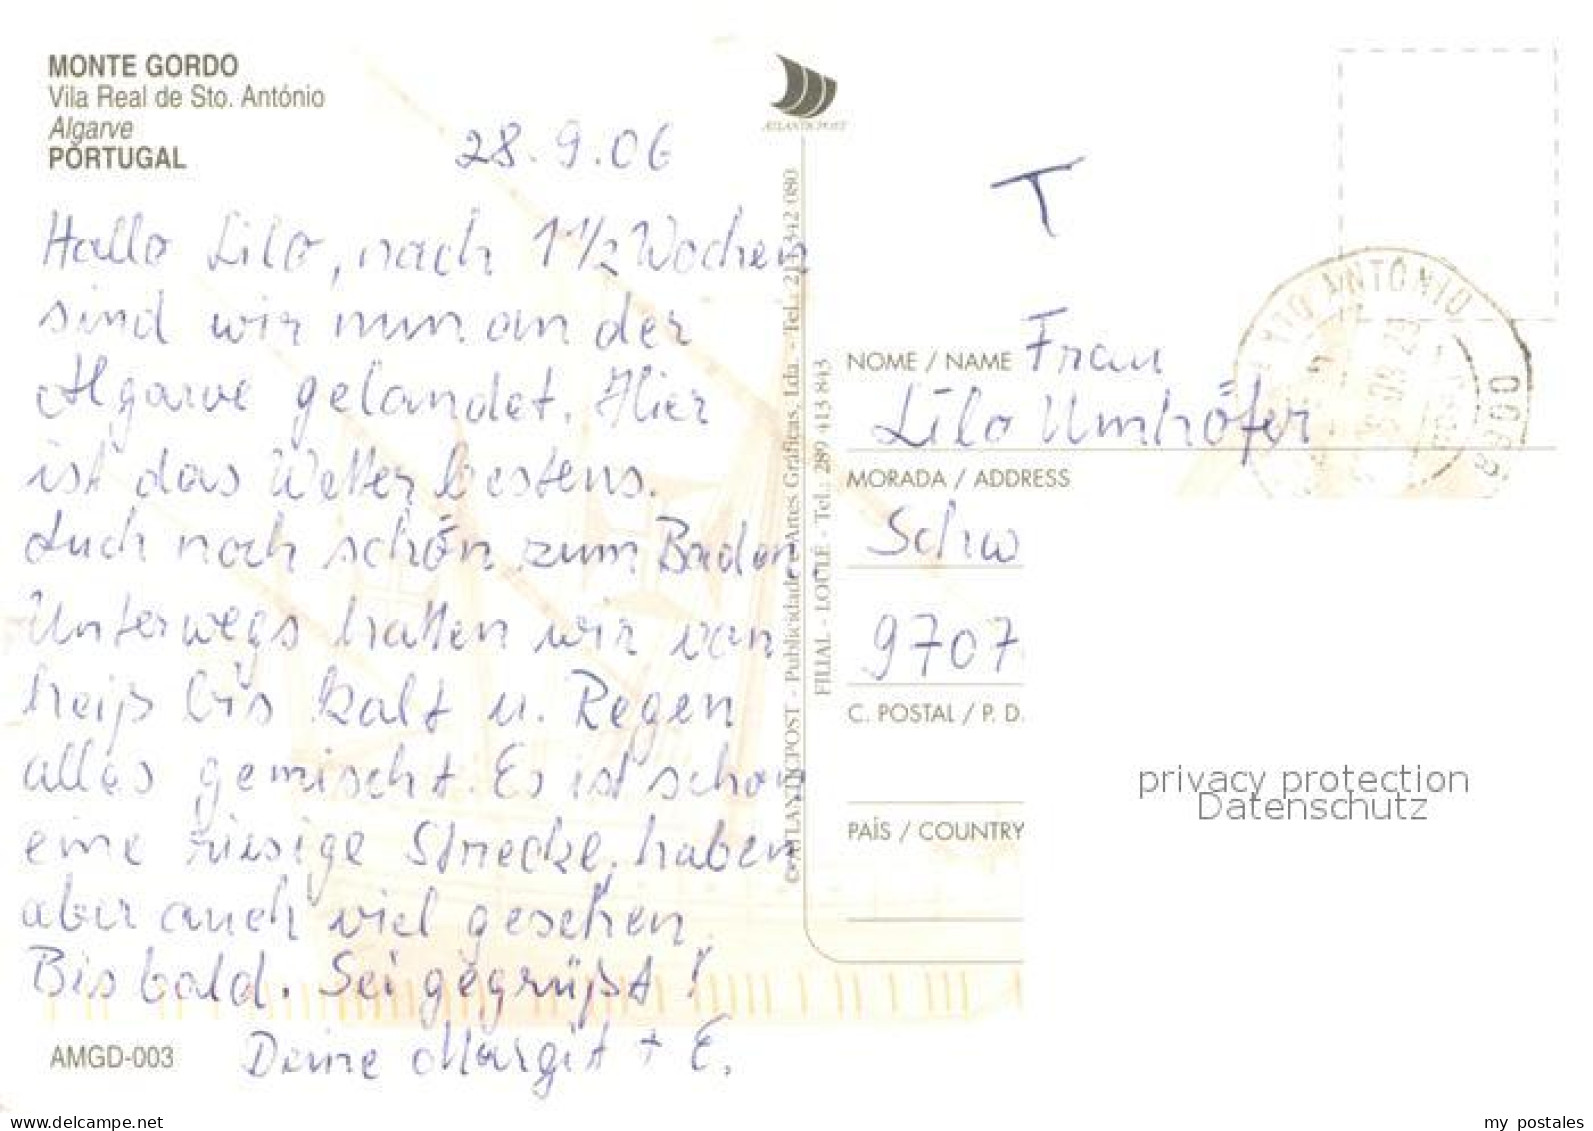 MONTE GORDO
Vila Real de Sto. António
Algarve
PORTUGAL
28.9.06
Hallo Lilo, nach 1 1/2 Wochen
sind wir nun an der
Algarve gelandet. Hier
ist das Wetter bestens.
Auch noch schön zum Baden.
Unterwegs hatten wir von
heiß bis kalt u. Regen
alles gemischt. Es ist schon
eine riesige Strecke, haben
aber auch viel gesehen.
Bis bald. Sei gegrüßt!
Deine Margit + E.
AMGD-003
ATLANTICPOST
© ATLANTICPOST - Publicidade e Artes Gráficas, Lda. - Tel.: 213 342 080
FILIAL - LOULÉ - Tel.: 289 413 843
T
NOME / NAME Frau
Lilo Umhöfer
MORADA / ADDRESS
Schw
9707
C. POSTAL / P. D.
PAÍS / COUNTRY
ANTÓNIO
privacy protection
Datenschutz
www.delcampe.net
my_postales